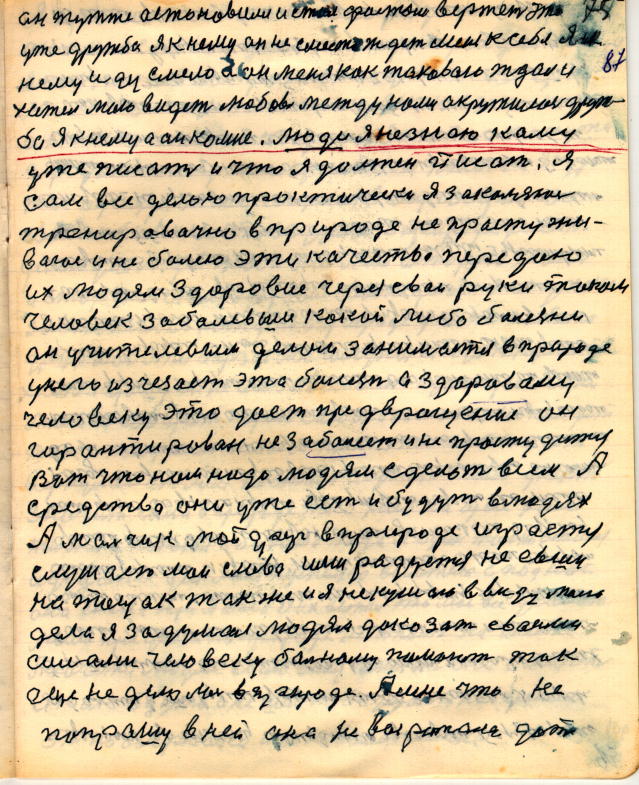 он тут же астановили и стал фостом вертет это 75
уже дружба я к нему он не смеет ждет меня к себя я и к
нему иду смело а он меня как таковаго ждал и 87
хател маю видет любов между нами окружилас друж-
ба я к нему а он комне. Люди я незнаю каму
уже писат и что я должен писат. я
сам все делаю практически я закаляю
тренировачно в природе не простужи-
ваюс и не болею эти качество передаю
их людям здоровие через сваи руки таком
человек забалевыи какой либо болезни
он учителевым делом занимаетя в природе
унего изчезает эта болезн а здоровому
человеку это дает предвращение он
гарантирован не заболеет и не простудитя
вот что нам надо людям сделат всем А
средства они уже ест и будут влюдях
А малчик мой друг в природе играетя
слушает маи слова или радуетя не евши
на том ак также и я некушаю в виду маго
дела я задумал людям доказат сваими
силами человеку балному помоит так
еще не делолос в природе. А мне что не
попрашу в ней она не